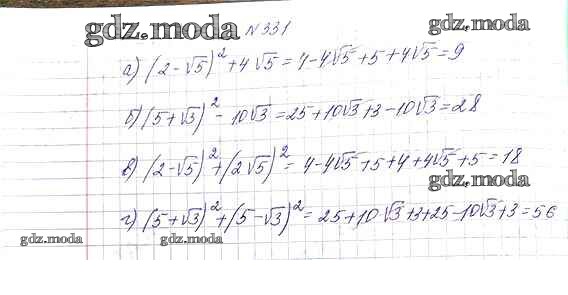 gdz.moda №331 gdz.moda
а) (2-√5)² + 4√5 = 4-4√5+5+4√5=9
б) (5+√3)² - 10√3 = 25+10√3+3-10√3=28
в) (2-√5)² + (2√5)² = 4-4√5+5+4+4√5+5=18
gdz.moda
г) (5+√3)² + (5-√3)² = 25+10√3+3+25-10√3+3=56
gdz.moda gdz.moda